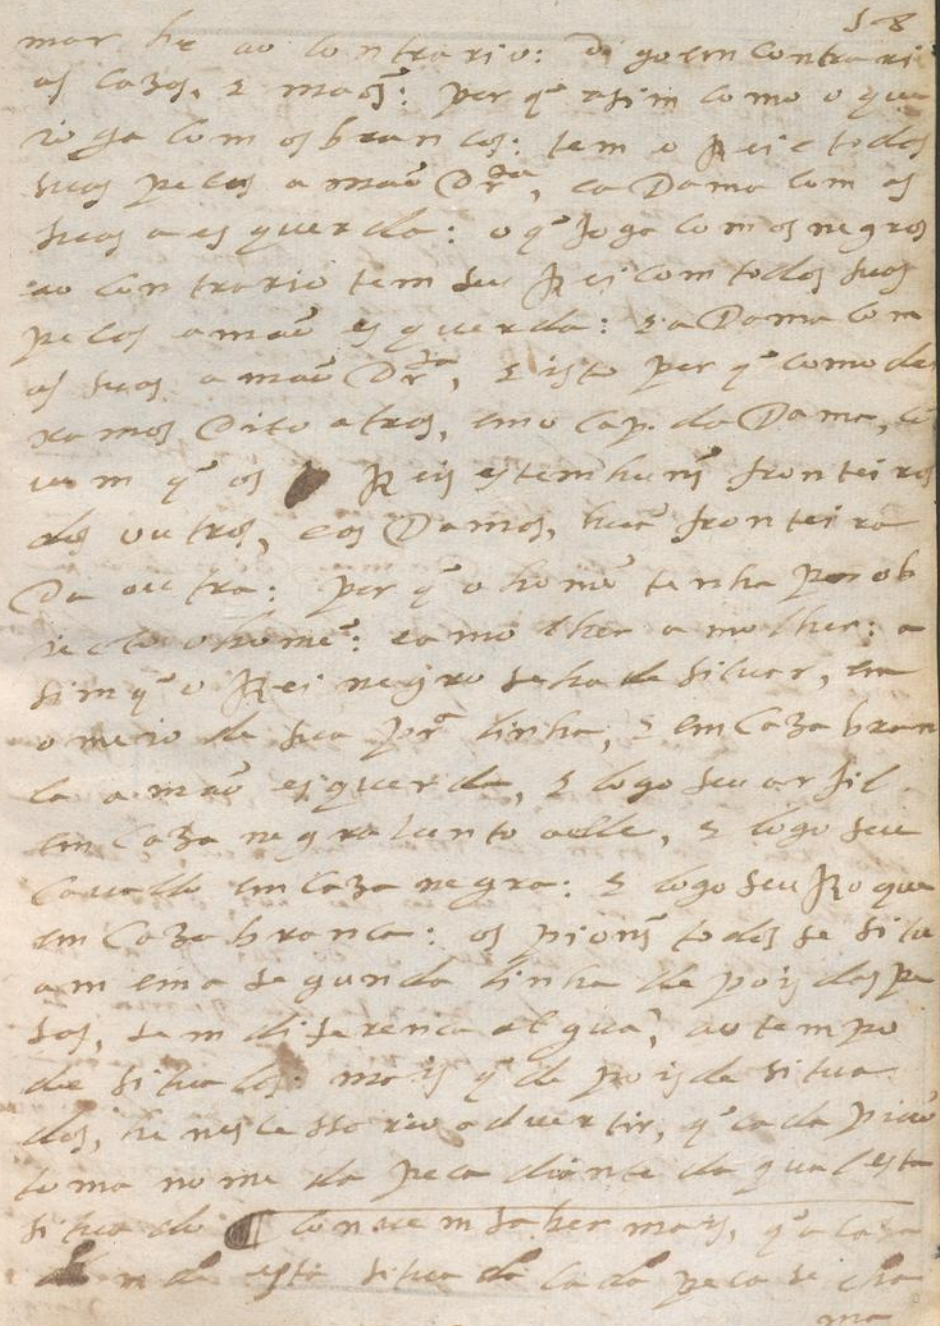 58
mar he ao contrario: digo em contrari
as cazas, e maõs: per q̃ asim como o que
ioga com os brancos: tem o Rei e todas
suas pecas a maõ Drta, e a Dama com as
suas a esquerda: o q̃ Joga com os negros
ao contrario tem seu Rei com todas suas
pecas a maõ esquerda: e a Dama com
as suas a maõ Drta, e isto per q̃ como dei
xamos Dito atras, em o cap. da Dama, cõ
uem q̃ os Reis estem huns fronteiros
dos outros, e as Damas, huã fronteira
Da outra: per q̃ o homẽ tenha por ob
iecto o homẽ: e a molher a molher: a
sim q̃ o Rei negro se ha de situar, em
o meio de sua prª linha, e em caza bran
ca a maõ esquerda, e logo seu arfil
em caza negra iunto a elle, e logo seu
Cauallo em caza negra: e logo seu Roque
em caza branca: os pions todos se situ
am em a segunda linha de pois das pe
sas, sem diferenca alguã, ao tempo
de situalos: mais q̃ de pois de situa
dos, he nescessario aduertir, q̃ cada piaõ
toma nome da peca diante da qual esta
situado ¶ conuem saber mais, q̃ a caza
em da esta situada cada peca se cha
ma